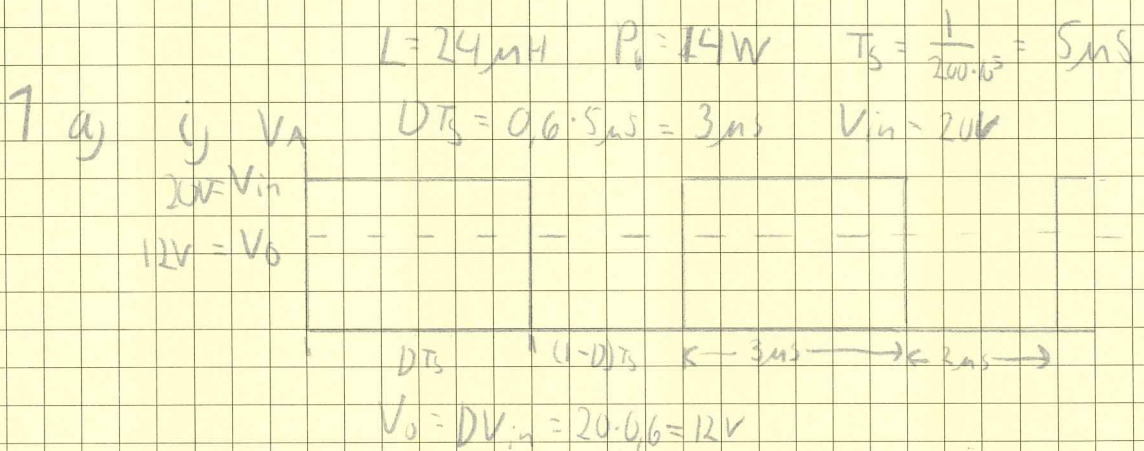 L = 24 μH P₀ = 14 W Ts = 1/(200·10³) = 5 μs
1 a) i) VA DTs = 0,6·5 μs = 3 μs Vin = 20V
20V = Vin
12V = Vo
DTs (1-D)Ts 3 μs 2 μs
Vo = DVin = 20·0,6 = 12V